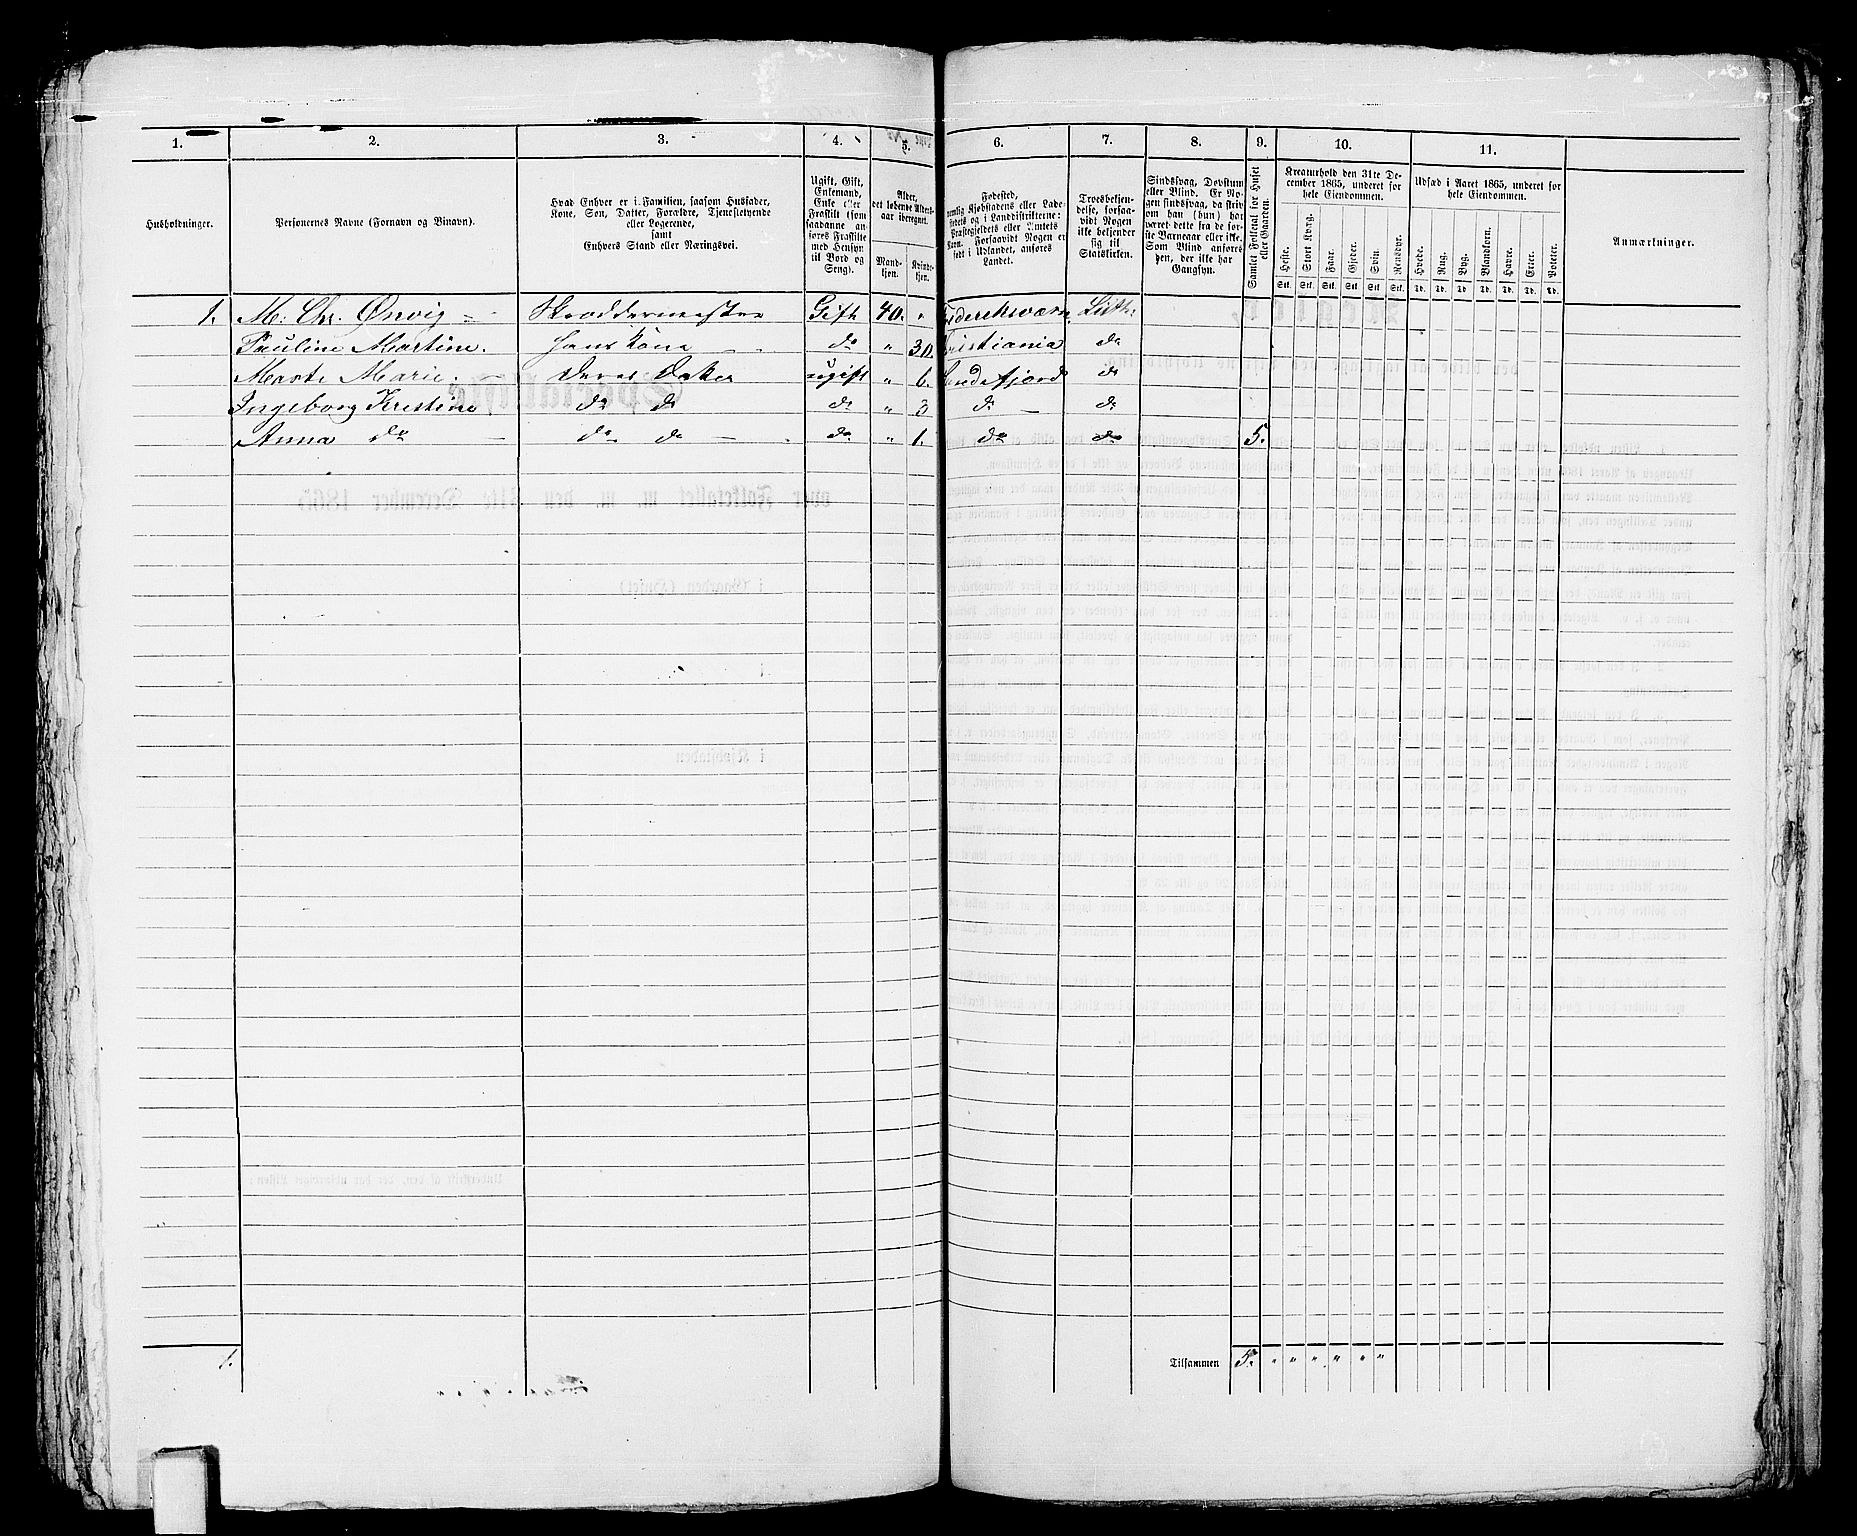 1. 2. 3. 4. 5. 6. 7. 8. 9. 10. 11.
Husholdninger.
Personernes Navne (Fornavn og Binavn).
Hvad Enhver er i Familien, saasom Husfader,
Kone, Søn, Datter, Forældre, Tjenestetyende
eller Logerende,
samt
Enhvers Stand eller Næringsvei.
Ugift, Gift,
Enkemand,
Enke eller
Fraskilt (som
saadanne an-
føres Fraskilte
med Hensyn
til Bord og
Seng).
Alder,
det løbende Alders-
aar iberegnet.
Mand-
kjøn.
Kvinde-
kjøn.
Fødested,
nemlig Kjøbstadens eller Lade-
stedets og i Landdistrikterne:
Præstegjeldets eller Amtets
Navn. Forsaavidt Nogen er
født i Udlandet, anføres
Landet.
Troesbekjen-
delse, forsaa-
vidt Nogen
ikke bekjender
sig til
Statskirken.
Sindssvag, Døvstum
eller Blind. Er No-
gen sindssvag, da skriv
om han (hun) har
været dette fra de før-
ste Barneaar eller ikke.
Som Blind anføres
den, der ikke har
Gangsyn.
Samlet Folketal for Huset
eller Gaarden.
Kreaturhold den 31te De-
cember 1865, anføret for
hele Eiendommen.
Heste. Stort Kvæg. Faar. Gjeder. Svin. Rensdyr.
Stk. Stk. Stk. Stk. Stk. Stk.
Udsæd i Aaret 1865, anføret for
hele Eiendommen.
Hvede. Rug. Byg. Blandkorn. Havre. Erter. Poteter.
Td. Td. Td. Td. Td. Td. Td.
Anmærkninger.
1. M. Chr. Ørvig Skræddermester Gift 40. " Frideriksværn Luth.
Pauline Martine. Hans Kone do " 30. Kristiania do
Marte Marie. Deres Datter ugift " 6. Sandefjord do
Ingeborg Kristine do do do " 3 do do
Anna do do do do " 1. do do 5.
1. Tilsammen 5. " " " " " "